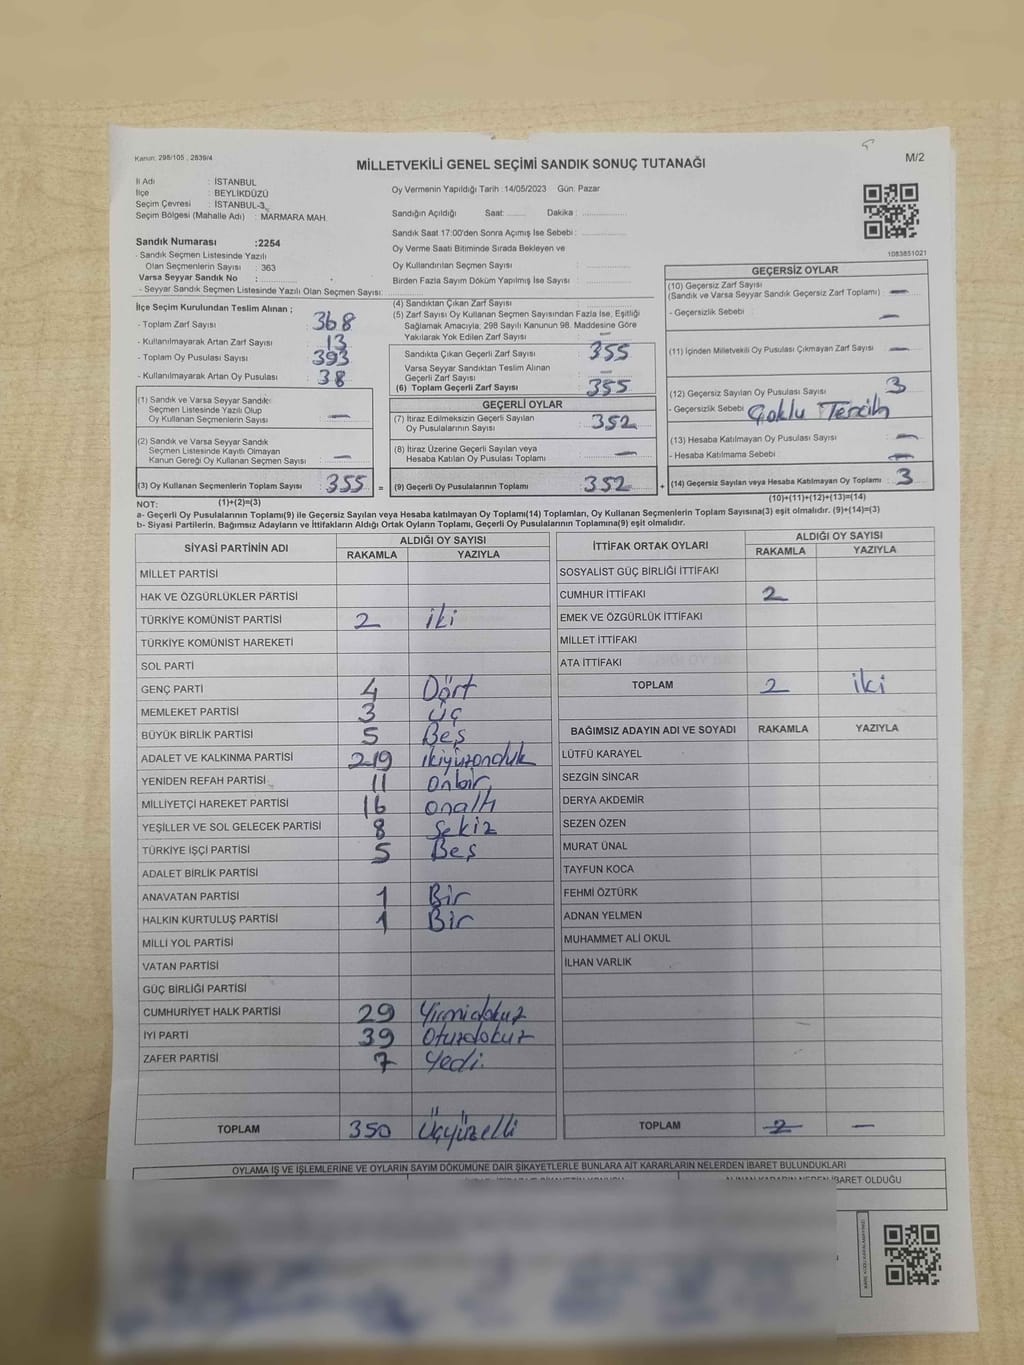 Kanun: 298/105 , 2839/4
MİLLETVEKİLİ GENEL SEÇİMİ SANDIK SONUÇ TUTANAĞI
M/2
İl Adı : İSTANBUL
İlçe : BEYLİKDÜZÜ
Seçim Çevresi : İSTANBUL-3
Seçim Bölgesi (Mahalle Adı) : MARMARA MAH.
Oy Vermenin Yapıldığı Tarih :14/05/2023 Gün: Pazar
Sandığın Açıldığı Saat: ........ Dakika : ..................
Sandık Saat 17:00'den Sonra Açılmış İse Sebebi : ..................
Sandık Numarası :2254
- Sandık Seçmen Listesinde Yazılı
Olan Seçmenlerin Sayısı : 363
Varsa Seyyar Sandık No :
- Seyyar Sandık Seçmen Listesinde Yazılı Olan Seçmen Sayısı:
Oy Verme Saati Bitiminde Sırada Bekleyen ve
Oy Kullandırılan Seçmen Sayısı :
Birden Fazla Sayım Döküm Yapılmış İse Sayısı :
1083851021
İlçe Seçim Kurulundan Teslim Alınan ;
- Toplam Zarf Sayısı : 368
- Kullanılmayarak Artan Zarf Sayısı : 13
- Toplam Oy Pusulası Sayısı : 393
- Kullanılmayarak Artan Oy Pusulası : 38
(1) Sandık ve Varsa Seyyar Sandık
Seçmen Listesinde Yazılı Olup
Oy Kullanan Seçmenlerin Sayısı : —
(2) Sandık ve Varsa Seyyar Sandık
Seçmen Listesinde Kayıtlı Olmayan
Kanun Gereği Oy Kullanan Seçmen Sayısı : —
(3) Oy Kullanan Seçmenlerin Toplam Sayısı : 355 =
(4) Sandıktan Çıkan Zarf Sayısı :
(5) Zarf Sayısı Oy Kullanan Seçmen Sayısından Fazla İse, Eşitliği
Sağlamak Amacıyla, 298 Sayılı Kanunun 98. Maddesine Göre
Yakılarak Yok Edilen Zarf Sayısı : —
Sandıkta Çıkan Geçerli Zarf Sayısı : 355
Varsa Seyyar Sandıktan Teslim Alınan
Geçerli Zarf Sayısı : —
(6) Toplam Geçerli Zarf Sayısı : 355
GEÇERLİ OYLAR
(7) İtiraz Edilmeksizin Geçerli Sayılan
Oy Pusulalarının Sayısı : 352
(8) İtiraz Üzerine Geçerli Sayılan veya
Hesaba Katılan Oy Pusulası Toplamı : —
(9) Geçerli Oy Pusulalarının Toplamı : 352 +
GEÇERSİZ OYLAR
(10) Geçersiz Zarf Sayısı
(Sandık ve Varsa Seyyar Sandık Geçersiz Zarf Toplamı) : —
- Geçersizlik Sebebi : —
(11) İçinden Milletvekili Oy Pusulası Çıkmayan Zarf Sayısı : —
(12) Geçersiz Sayılan Oy Pusulası Sayısı : 3
- Geçersizlik Sebebi : Çoklu Tercih
(13) Hesaba Katılmayan Oy Pusulası Sayısı : —
- Hesaba Katılmama Sebebi : —
(14) Geçersiz Sayılan veya Hesaba Katılmayan Oy Toplamı : 3
NOT: (1)+(2)=(3)
(10)+(11)+(12)+(13)=(14)
a- Geçerli Oy Pusulalarının Toplamı(9) ile Geçersiz Sayılan veya Hesaba katılmayan Oy Toplamı(14) Toplamları, Oy Kullanan Seçmenlerin Toplam Sayısına(3) eşit olmalıdır. (9)+(14)=(3)
b- Siyasi Partilerin, Bağımsız Adayların ve İttifakların Aldığı Ortak Oyların Toplamı, Geçerli Oy Pusulalarının Toplamına(9) eşit olmalıdır.
SİYASİ PARTİNİN ADI ALDIĞI OY SAYISI
RAKAMLA YAZIYLA
MİLLET PARTİSİ
HAK VE ÖZGÜRLÜKLER PARTİSİ
TÜRKİYE KOMÜNİST PARTİSİ 2 iki
TÜRKİYE KOMÜNİST HAREKETİ
SOL PARTİ
GENÇ PARTİ 4 Dört
MEMLEKET PARTİSİ 3 üç
BÜYÜK BİRLİK PARTİSİ 5 Beş
ADALET VE KALKINMA PARTİSİ 219 ikiyüzonduk
YENİDEN REFAH PARTİSİ 11 onbir
MİLLİYETÇİ HAREKET PARTİSİ 16 onaltı
YEŞİLLER VE SOL GELECEK PARTİSİ 8 Sekiz
TÜRKİYE İŞÇİ PARTİSİ 5 Beş
ADALET BİRLİK PARTİSİ
ANAVATAN PARTİSİ 1 Bir
HALKIN KURTULUŞ PARTİSİ 1 Bir
MİLLİ YOL PARTİSİ
VATAN PARTİSİ
GÜÇ BİRLİĞİ PARTİSİ
CUMHURİYET HALK PARTİSİ 29 Yirmidokuz
İYİ PARTİ 39 Otuzdokuz
ZAFER PARTİSİ 7 Yedi.
TOPLAM 350 Üçyüzelli
İTTİFAK ORTAK OYLARI ALDIĞI OY SAYISI
RAKAMLA YAZIYLA
SOSYALİST GÜÇ BİRLİĞİ İTTİFAKI
CUMHUR İTTİFAKI 2
EMEK VE ÖZGÜRLÜK İTTİFAKI
MİLLET İTTİFAKI
ATA İTTİFAKI
TOPLAM 2 iki
BAĞIMSIZ ADAYIN ADI VE SOYADI RAKAMLA YAZIYLA
LÜTFÜ KARAYEL
SEZGİN SİNCAR
DERYA AKDEMİR
SEZEN ÖZEN
MURAT ÜNAL
TAYFUN KOCA
FEHMİ ÖZTÜRK
ADNAN YELMEN
MUHAMMET ALİ OKUL
İLHAN VARLIK
TOPLAM 2 —
OYLAMA İŞ VE İŞLEMLERİNE VE OYLARIN SAYIM DÖKÜMÜNE DAİR ŞİKAYETLERLE BUNLARA AİT KARARLARIN NELERDEN İBARET BULUNDUKLARI
İBARET OLDUĞU